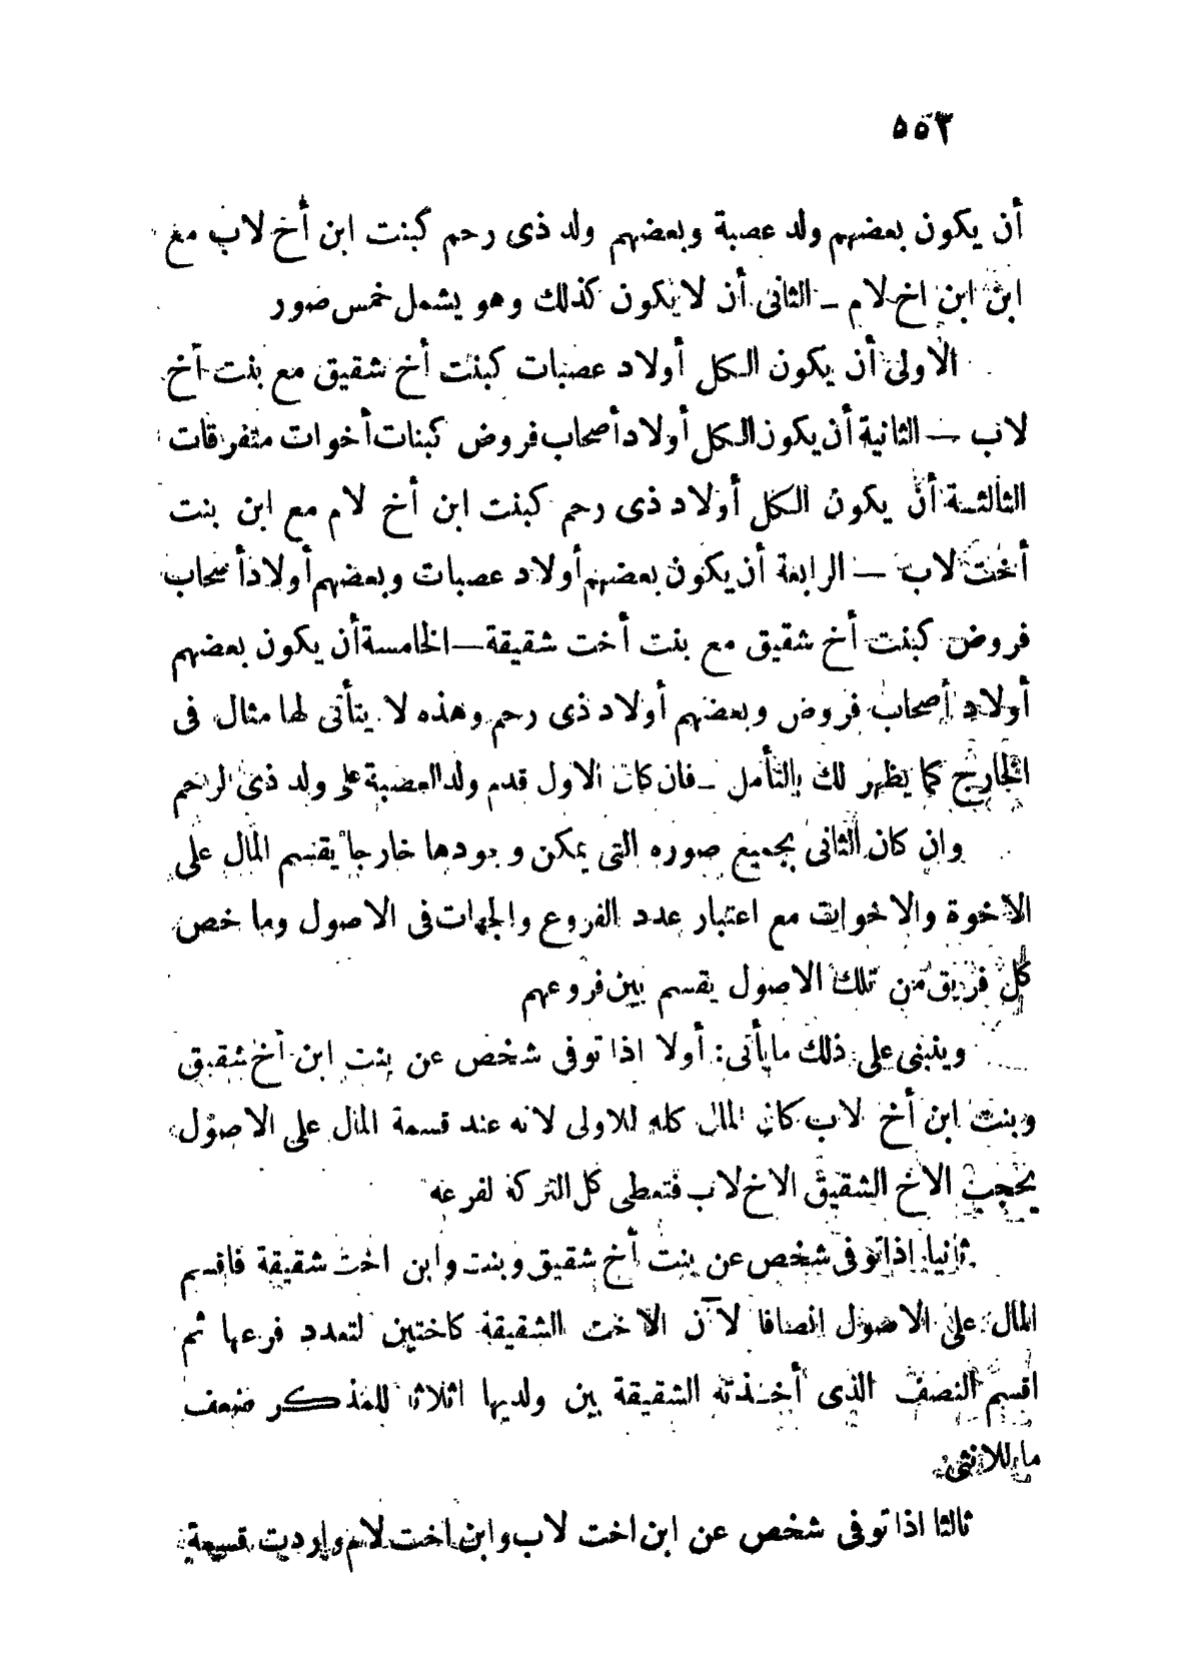 ٥٥٣
أن يكون بعضهم ولد عصبة وبعضهم ولد ذى رحم كبنت ابن أخ لاب مع
ابن ابن اخ لام ــ الثانى أن لا يكون كذلك وهو يشمل خمس صور
الاولى أن يكون الكل أولاد عصبات كبنت أخ شقيق مع بنت أخ
لاب ــ الثانية أن يكون الكل أولاد أصحاب فروض كبنات أخوات متفرقات
الثالثة أن يكون الكل أولاد ذى رحم كبنت ابن أخ لام مع ابن بنت
أخت لاب ــ الرابعة أن يكون بعضهم أولاد عصبات وبعضهم أولاد أصحاب
فروض كبنت أخ شقيق مع بنت أخت شقيقة ــ الخامسة أن يكون بعضهم
أولاد أصحاب فروض وبعضهم أولاد ذى رحم وهذه لا يتأتى لها مثال فى
الخارج كما يظهر لك بالتأمل ــ فان كان الاول قدم ولد العصبة على ولد ذى الرحم
وان كان الثانى بجميع صوره التى يمكن وجودها خارجا يقسم المال على
الاخوة والاخوات مع اعتبار عدد الفروع والجهات فى الاصول وما خص
كل فريق من تلك الاصول يقسم بين فروعهم
وينبنى على ذلك مايأتى: أولا اذا توفى شخص عن بنت ابن أخ شقيق
وبنت ابن أخ لاب كان المال كله للاولى لانه عند قسمة المال على الاصول
يحجب الاخ الشقيق الاخ لاب فتعطى كل التركة لفرعه
ثانيا اذا توفى شخص عن بنت أخ شقيق وبنت وابن اخت شقيقة فاقسم
المال على الاصول انصافا لأن الاخت الشقيقة كاختين لتعدد فرعها ثم
اقسم النصف الذى أخذته الشقيقة بين ولديها اثلاثا للمذكر ضعف
ما للانثى
ثالثا اذا توفى شخص عن ابن اخت لاب وابن اخت لام واردت قسمة